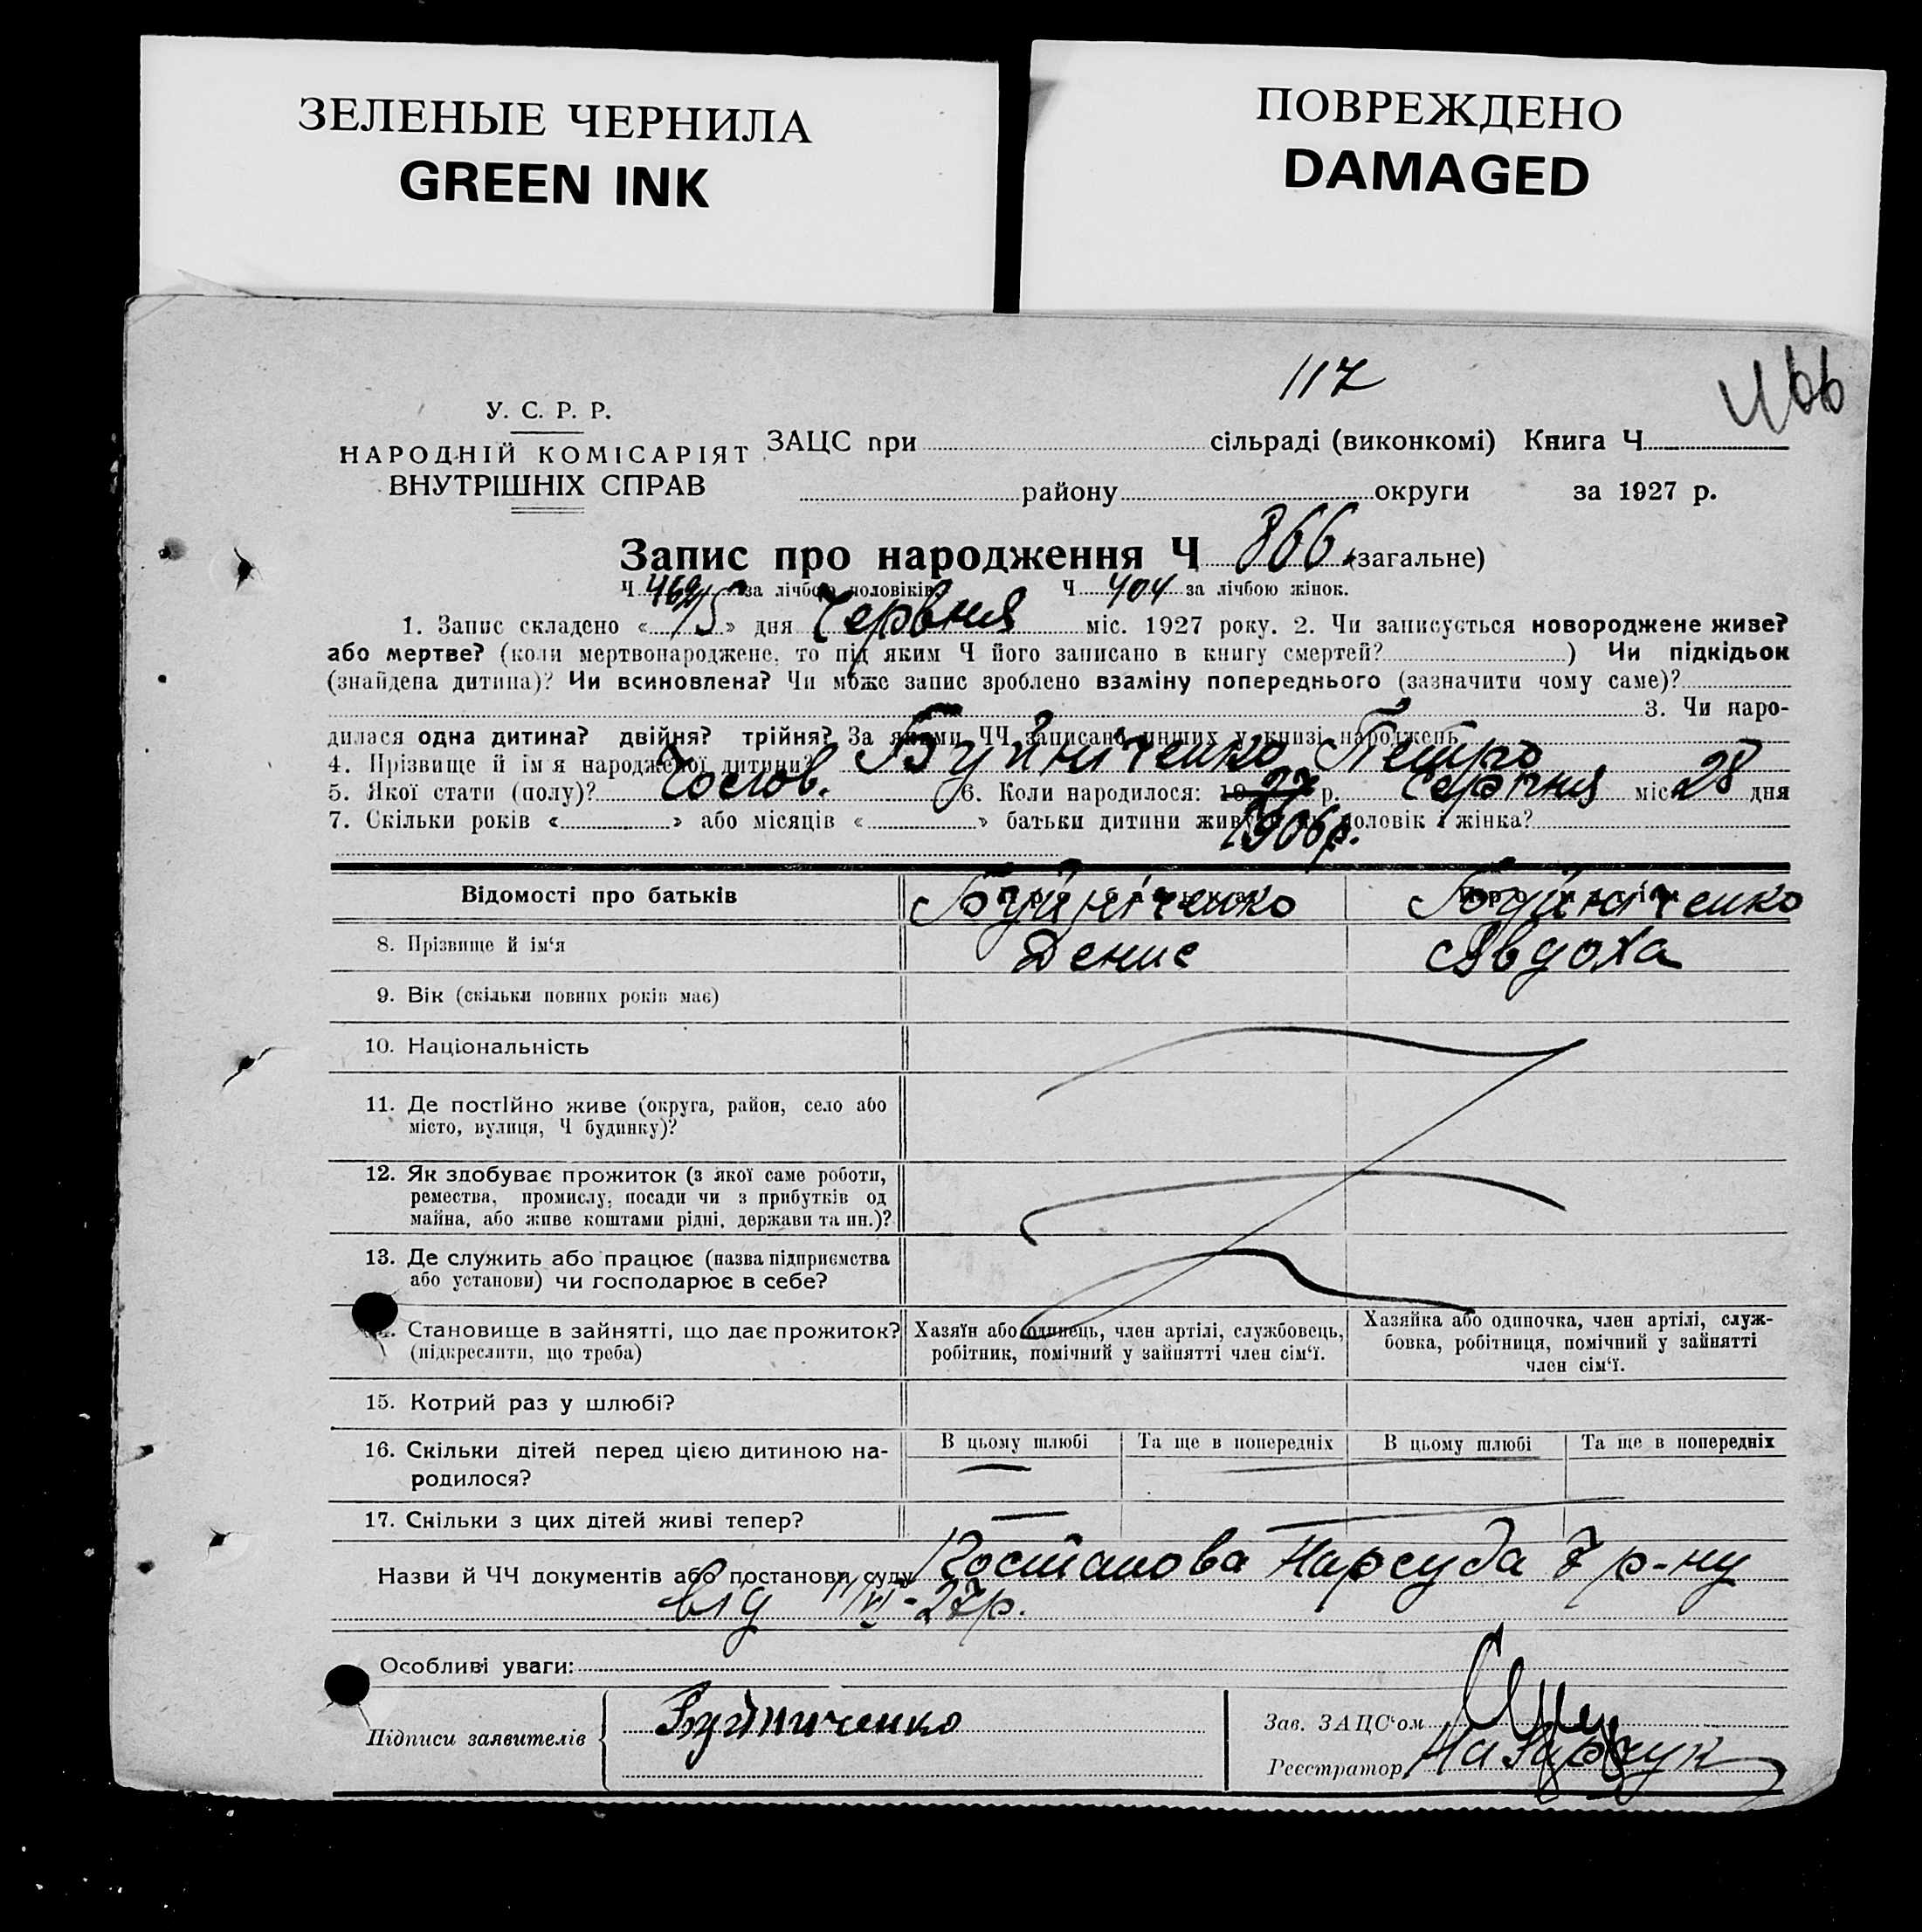 ЗЕЛЕНЫЕ ЧЕРНИЛА
GREEN INK
ПОВРЕЖДЕНО
DAMAGED
117
У. С. Р. Р.
НАРОДНІЙ КОМІСАРІЯТ
ВНУТРІШНІХ СПРАВ
ЗАЦС при сільраді (виконкомі) Книга Ч
району округи за 1927 р.
Запис про народження Ч 866 (загальне)
Ч за лічбою чоловіків. Ч 404 за лічбою жінок.
1. Запис складено « 15 » дня Червня міс. 1927 року. 2. Чи записується новороджене живе?
або мертве? (коли мертвонароджене, то під яким Ч його записано в книгу смертей? ) Чи підкідьок
(знайдена дитина)? Чи всиновлена? Чи може запис зроблено взаміну попереднього (зазначити чому саме)?
3. Чи наро-
дилася одна дитина? двійня? трійня? За якими ЧЧ записано инших у книзі народжень
4. Прізвище й ім'я народженої дитини? Буйніченко Петро
5. Якої стати (полу)? Чолов. 6. Коли народилося: 1927 р. Серпня міс 28 дня
7. Скільки років « » або місяців « » батьки дитини живуть чоловік і жінка?
1906р.
Відомості про батьків
Буйніченко Буйніченко
8. Прізвище й ім'я Денис Явдоха
9. Вік (скільки повних років має)
10. Національність
11. Де постійно живе (округа, район, село або
місто, вулиця, Ч будинку)?
12. Як здобуває прожиток (з якої саме роботи,
ремества, промислу, посади чи з прибутків од
майна, або живе коштами рідні, держави та ин.)?
13. Де служить або працює (назва підприємства
або установи) чи господарює в себе?
Становище в зайнятті, що дає прожиток?
(підкреслити, що треба)
Хазяїн або одинець, член артілі, службовець,
робітник, помічний у зайнятті член сім'ї.
Хазяйка або одиночка, член артілі, служ-
бовка, робітниця, помічний у зайнятті
член сім'ї.
15. Котрий раз у шлюбі?
16. Скільки дітей перед цією дитиною на-
родилося?
В цьому шлюбі Та ще в попередніх В цьому шлюбі Та ще в попередніх
17. Скільки з цих дітей живі тепер?
Назви й ЧЧ документів або постанови суду Постанова Нарсуда 7 р-ну
від 11/VI-27р.
Особливі уваги:
Підписи заявителів Буйниченко
Зав. ЗАЦС'ом
Реєстратор Назарчук